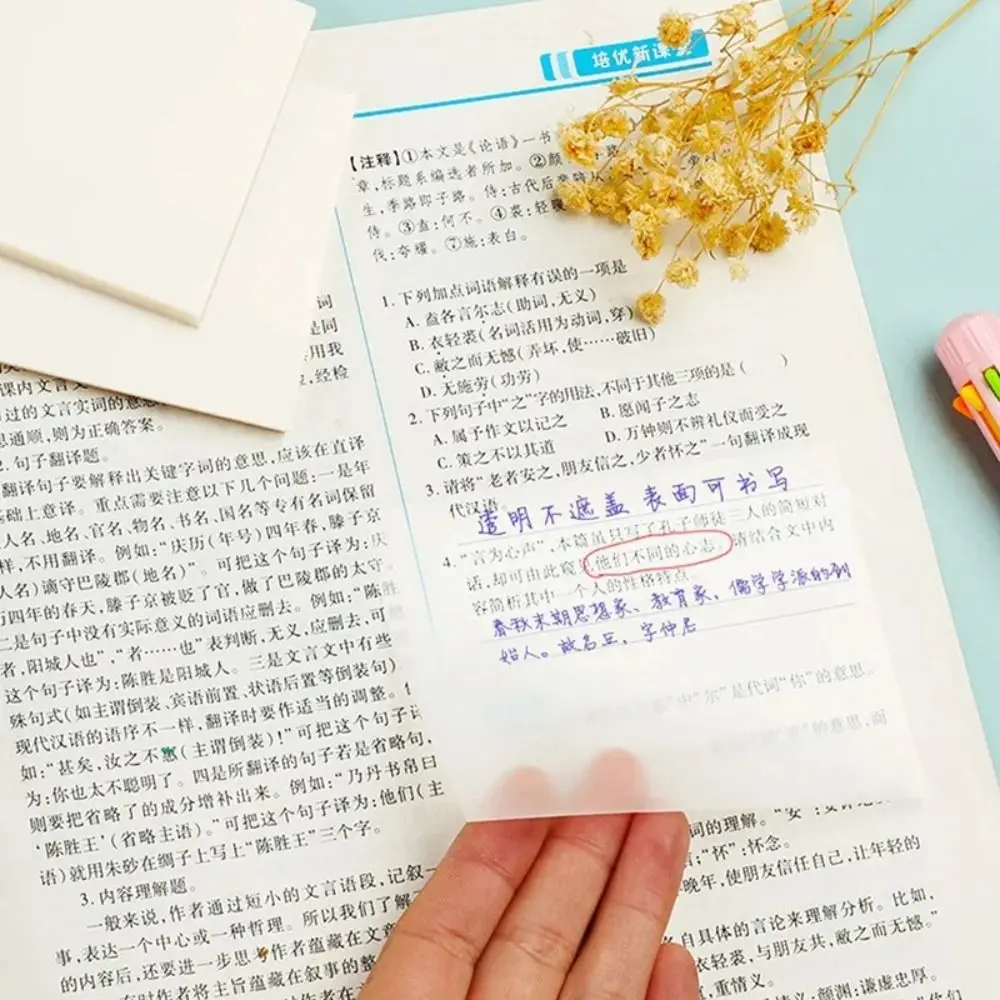 词
是同
用我
,经检
课内文言文
过的文言实词的意思
思通顺,则为正确答案。
2.句子翻译题。
翻译句子要解释出关键字词的意思,应该在直译
基础上意译。重点需要注意以下几个问题:一是年
人名、地名、官名、物名、书名、国名等专有名词保留
样,不用翻译。例如:“庆历(年号)四年春,滕子京
人名)谪守巴陵郡(地名)”。可把这个句子译为:庆
历四年的春天,滕子京被贬了官,做了巴陵郡的太守。
二是句子中没有实际意义的词语应删去。例如:“陈胜
者,阳城人也”,“者……也”表判断,无义,应删去,可
这个句子译为:陈胜是阳城人。三是文言文中有些
殊句式(如主谓倒装、宾语前置、状语后置等倒装句)
现代汉语的语序不一样,翻译时要作适当的调整。
如:“甚矣,汝之不惠(主谓倒装)!”可把这个句子译
为:你也太不聪明了。四是所翻译的句子若是省略句,
则要把省略了的成分增补出来。例如:“乃丹书帛曰
‘陈胜王’(省略主语)。”可把这个句子译为:他们(主
语)就用朱砂在绸子上写上“陈胜王”三个字。
3.内容理解题。
一般来说,作者通过短小的文言语段,记叙一
事,表达一个中心或一种哲理。所以我们了解
的内容后,还要进一步思考作者蕴藏在文章
有时作者将主旨蕴藏在叙事的整
培优新课
【注释】①本文是《论语》一书
章,标题系编选者所加。②颜
生,季路即子路。侍:古代后辈陪从
侍。③盍:何不。④裘:轻暖
伐:夸耀。⑦施:表白。
1.下列加点词语解释有误的一项是
A.盍各言尔志(助词,无义)
B.衣轻裘(名词活用为动词,穿)
C.敝之而无憾(弄坏,使……破旧)
D.无施劳(功劳)
2.下列句子中“之”字的用法,不同于其他三项的是( )
A.属予作文以记之 B.愿闻子之志
C.策之不以其道 D.万钟则不辨礼仪而受之
3.请将“老者安之,朋友信之,少者怀之”一句翻译成现
代汉语。
透明不遮盖 表面可书写
4.“言为心声”,本篇虽只写了孔子师徒三人的简短对
话,却可由此窥见他们不同的心志。请结合文中内
容简析其中一个人的性格特点。
春秋末期思想家、教育家、儒学学派的创
始人。故名丘,字仲尼
中“尔”是代词“你”的意思。
的意思,而
词的理解。“安”:
“怀”:怀念。
晚年,使朋友信任自己,让年轻的
自具体的言论来理解分析。比如,
衣轻裘,与朋友共,敝之而无憾。”
,重情义。
颜渊:谦虚忠厚。